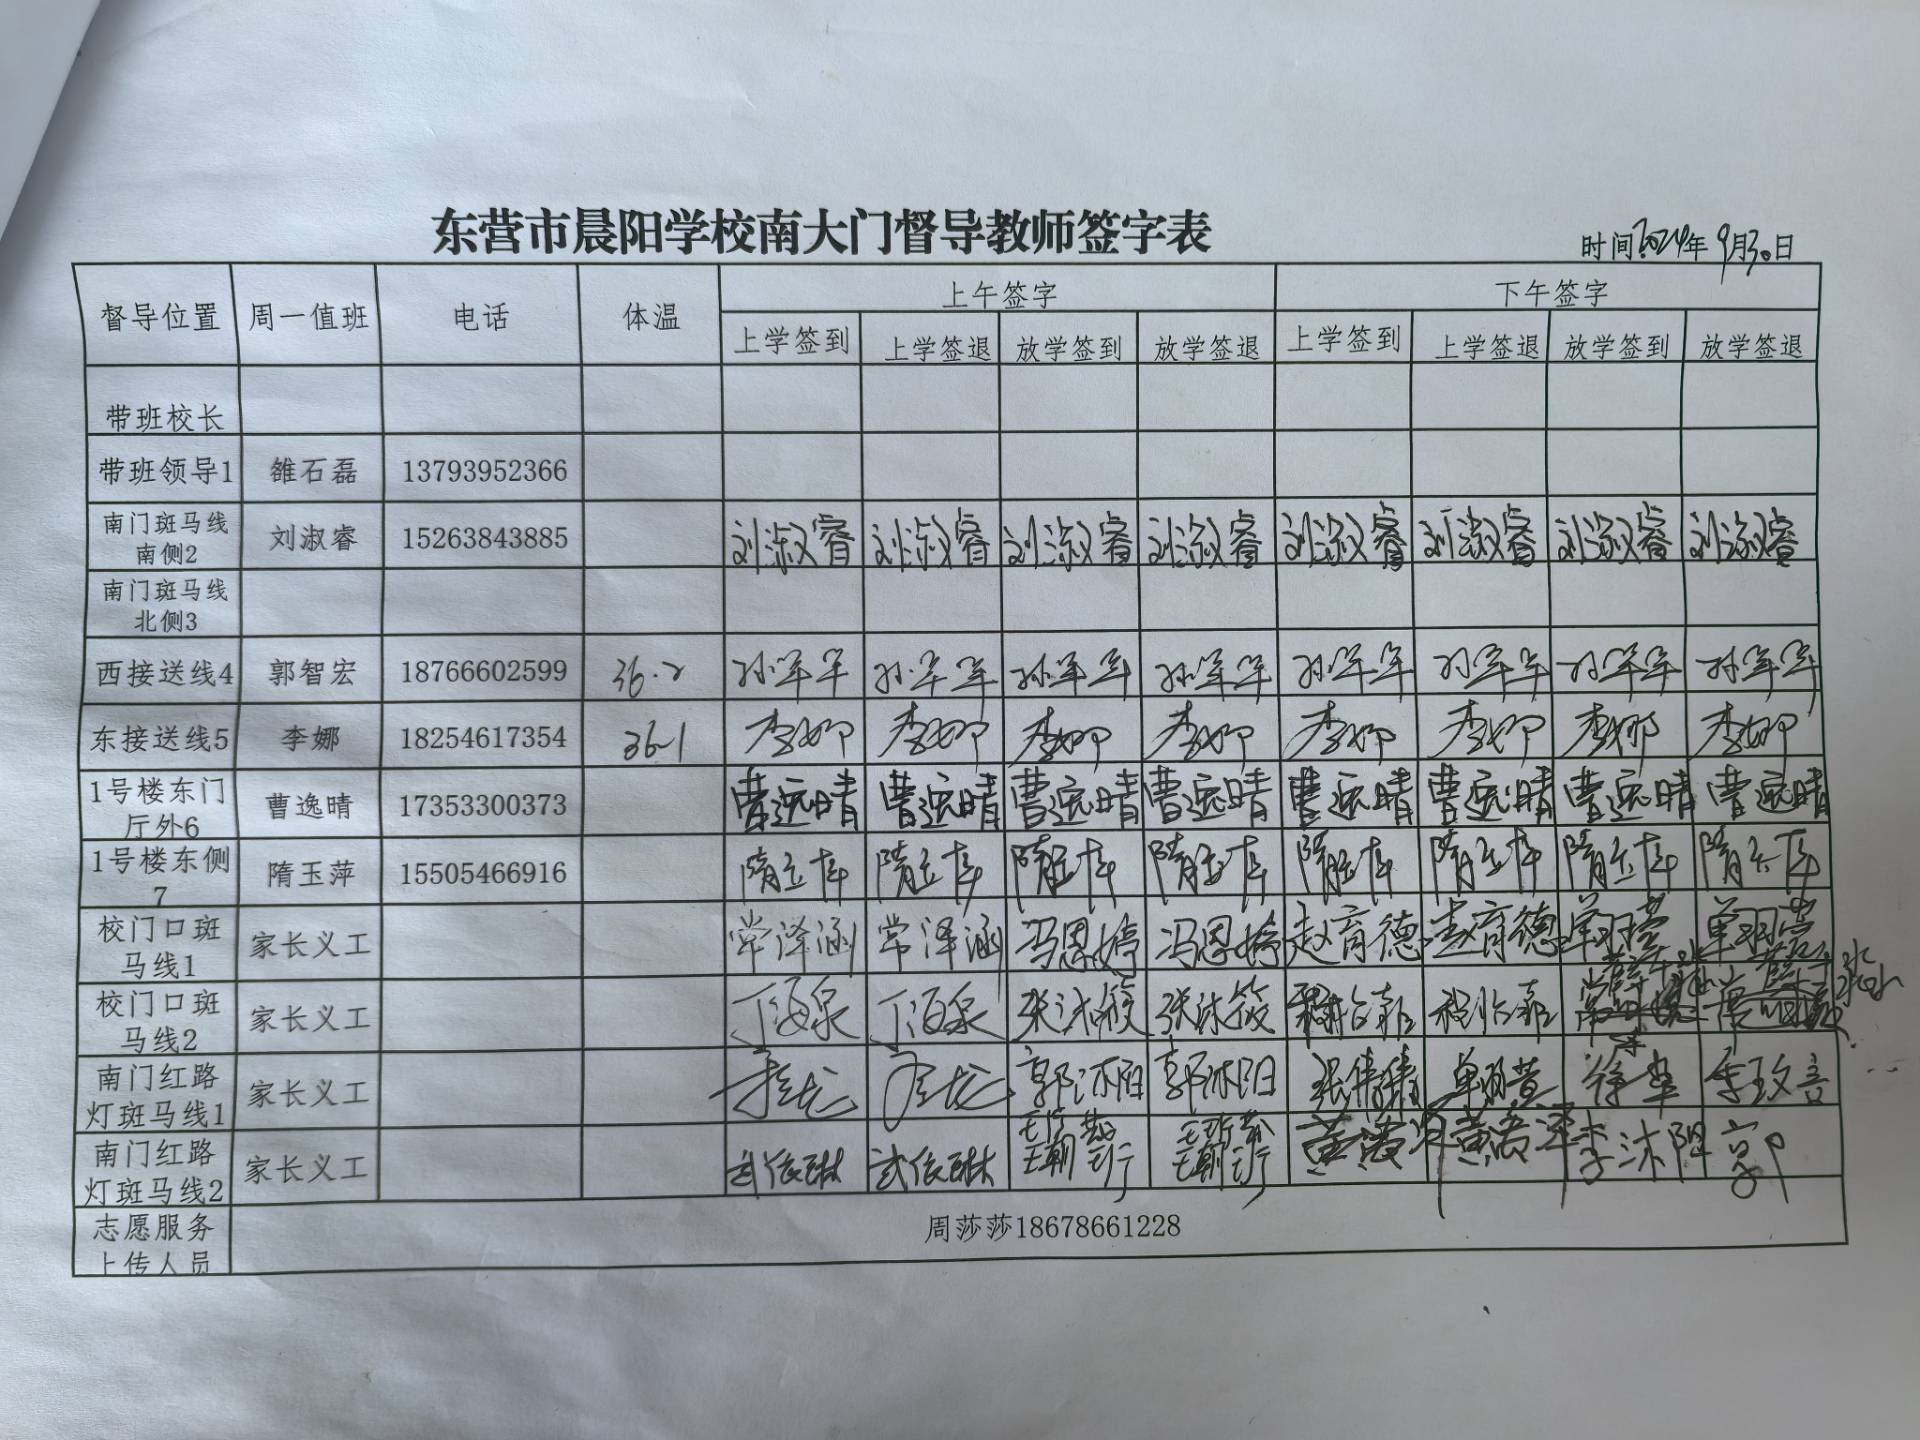 东营市晨阳学校南大门督导教师签字表
时间2024年9月30日
督导位置 周一值班 电话 体温 上午签字 下午签字
上学签到 上学签退 放学签到 放学签退 上学签到 上学签退 放学签到 放学签退
带班校长
带班领导1 雒石磊 13793952366
南门斑马线
南侧2 刘淑睿 15263843885 刘淑睿 刘淑睿 刘淑睿 刘淑睿 刘淑睿 刘淑睿 刘淑睿 刘淑睿
南门斑马线
北侧3
西接送线4 郭智宏 18766602599 36.2 孙军军 孙军军 孙军军 孙军军 孙军军 孙军军 孙军军 孙军军
东接送线5 李娜 18254617354 36.1 李娜 李娜 李娜 李娜 李娜 李娜 李娜 李娜
1号楼东门
厅外6 曹逸晴 17353300373 曹逸晴 曹逸晴 曹逸晴 曹逸晴 曹逸晴 曹逸晴 曹逸晴 曹逸晴
1号楼东侧
7 隋玉萍 15505466916 隋玉萍 隋玉萍 隋玉萍 隋玉萍 隋玉萍 隋玉萍 隋玉萍 隋玉萍
校门口斑
马线1 家长义工 常泽涵 常泽涵 冯恩婷 冯恩婷 赵育德 赵育德
校门口斑
马线2 家长义工 丁海泉 丁海泉 张沐筱 张沐筱
南门红路
灯斑马线1 家长义工 郭沐阳 郭沐阳
南门红路
灯斑马线2 家长义工 武依琳 武依琳 李沐阳 郭
志愿服务
上传人员 周莎莎18678661228